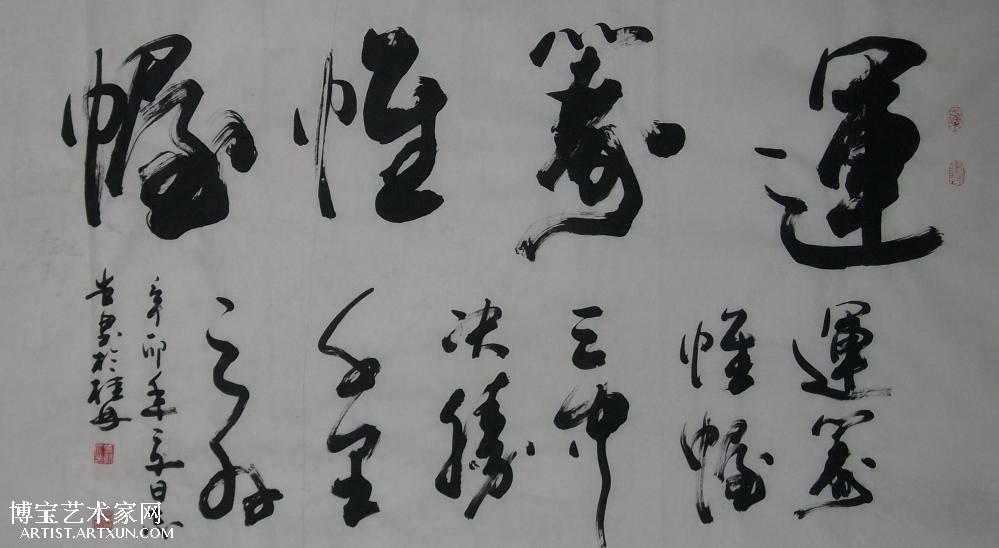 運籌帷幄
運籌
帷幄
之中
决勝
千里
之外
辛卯年
博宝艺术家网
ARTIST.ARTXUN.COM